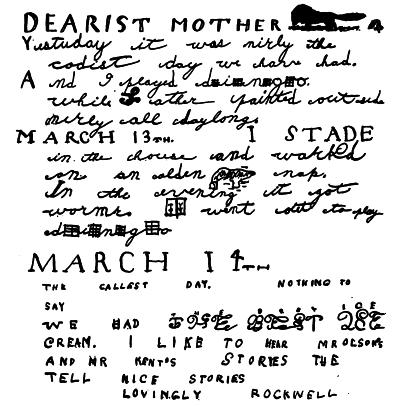 DEARIST MOTHER
Yesturday it was nirly the
coolist day we have had.
And I played
while Father painted out side
nirly all daylong.
MARCH 13TH. I STADE
in the house and warked
on an olden map.
In the evening it got
worme. I went out to play
MARCH 14TH
THE CALLEST DAY. NOTHING TO
SAY
WE HAD THE BEST ICE
CREAM. I LIKE TO HEAR MR OLSONS
AND MR KENTOS STORYES THE
TELL NICE STORIES
LOVINGLY ROCKWELL